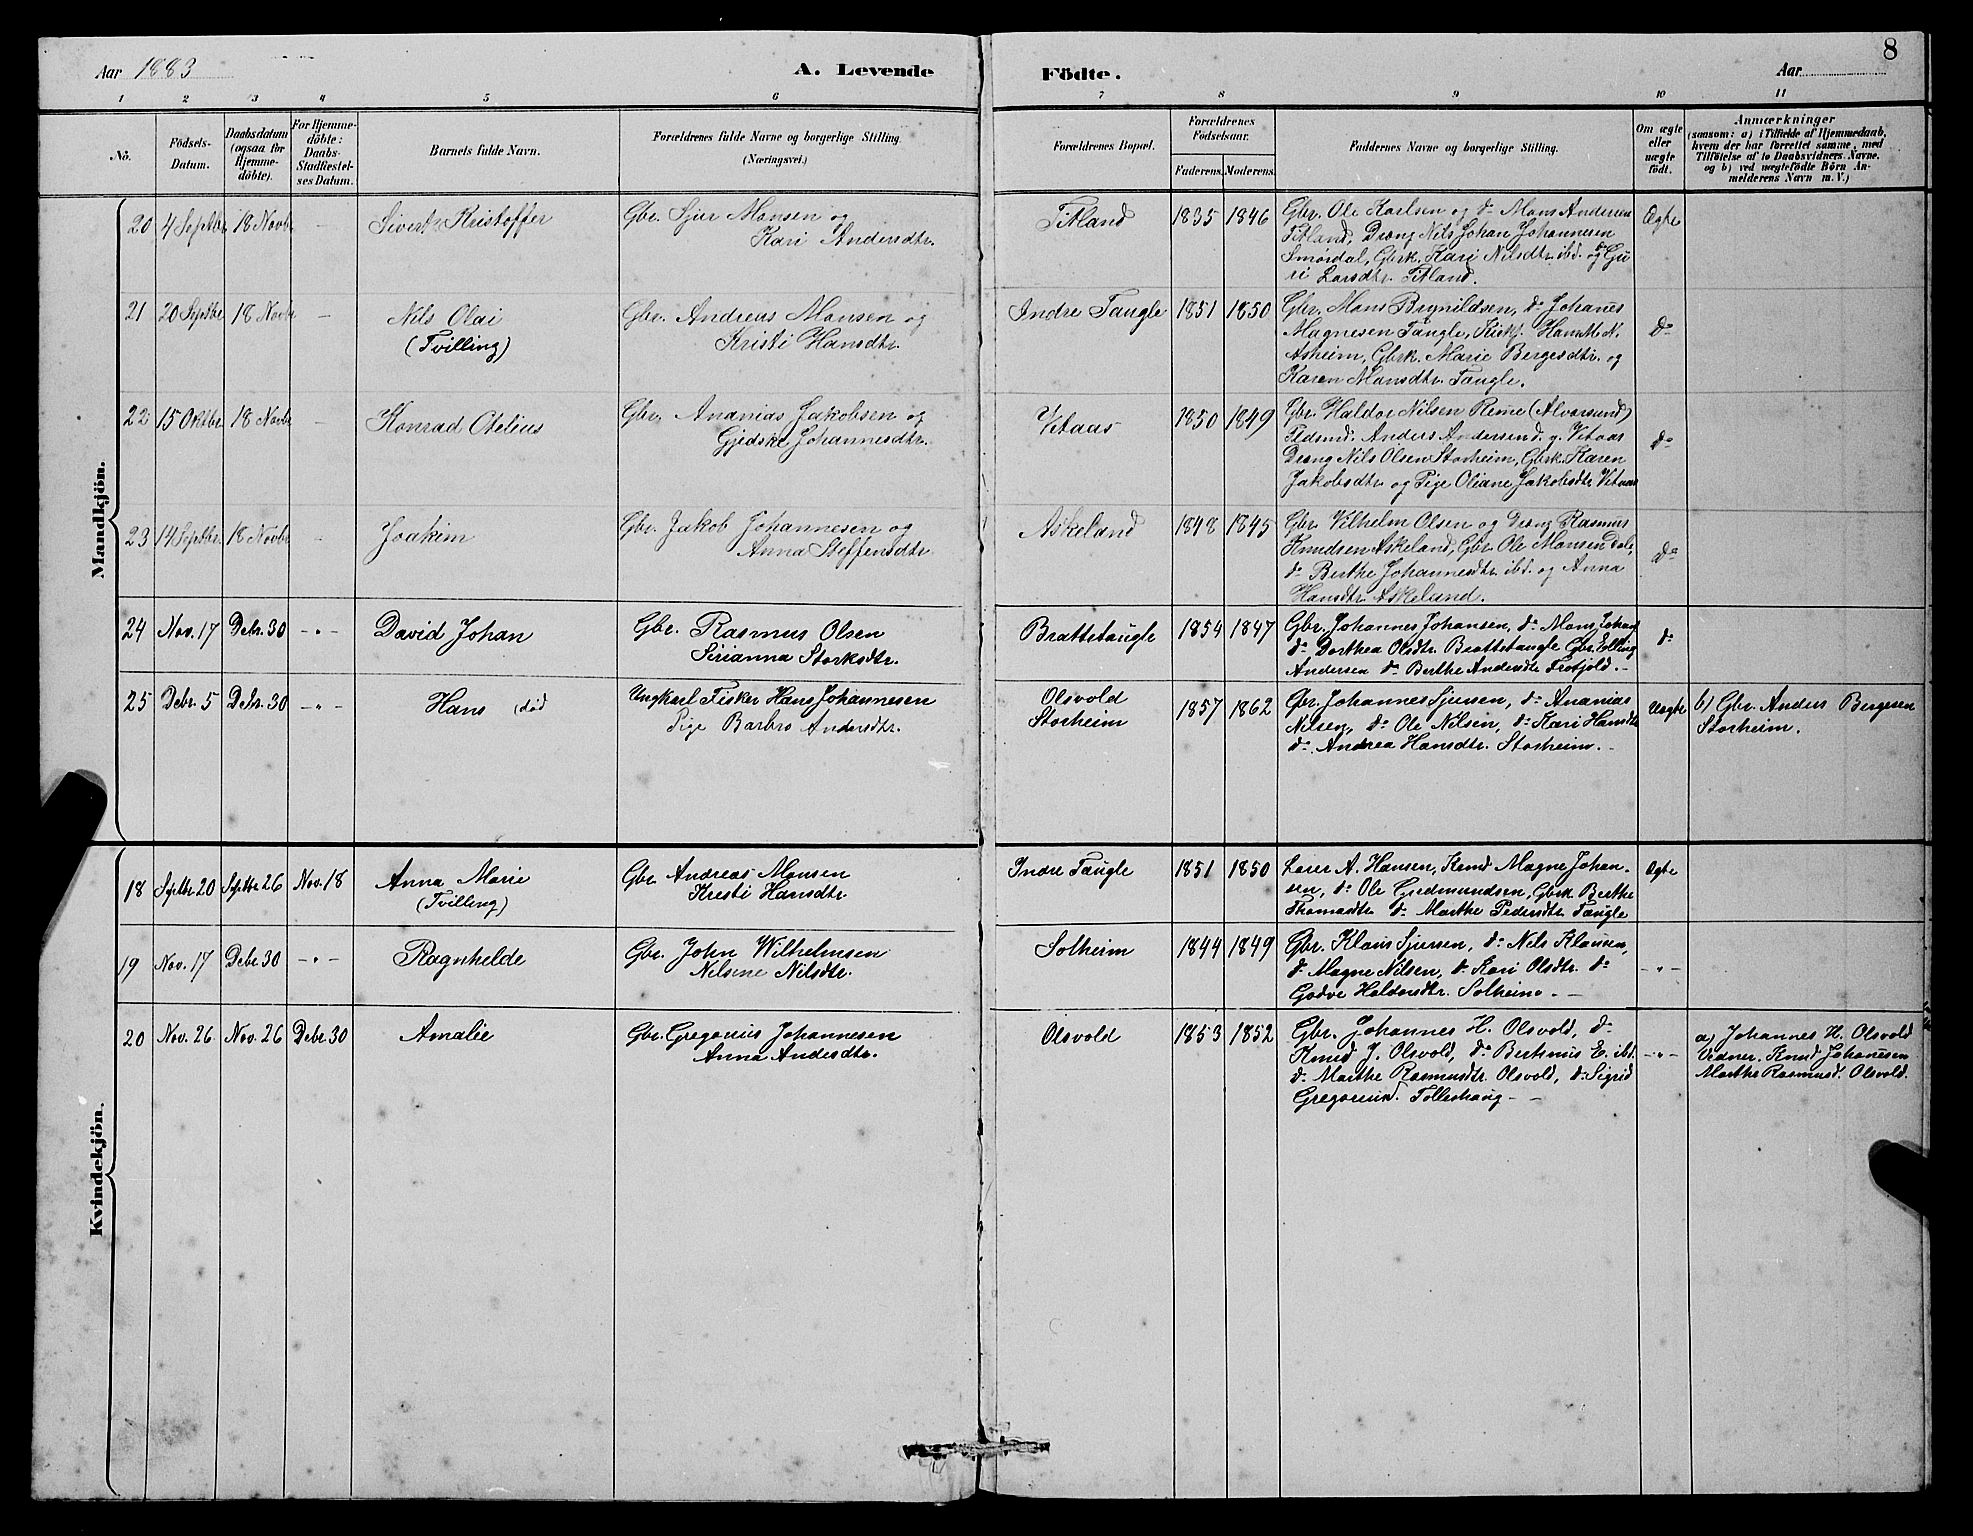 8
Aar 1883
A. Levende
Födte.
Aar
1 2 3 4 5 6 7 8 9 10 11
No.
Födsels-
Datum.
Daabsdatum
(ogsaa for
Hjemme-
döbte).
For Hjemme-
döbte:
Daabs-
Stadfæstel-
ses Datum.
Barnets fulde Navn.
Forældrenes fulde Navne og borgerlige Stilling.
(Næringsvei.)
Forældrenes Bopæl.
Forældrenes
Födselsaar.
Faderens. Moderens.
Faddernes Navne og borgerlige Stilling.
Om ægte
eller
uægte
født.
Anmærkninger
(saasom: a) i Tilfælde af Hjemmedaab,
hvem der har forrettet samme, med
Tilföielse af to Daabsvidners Navne,
og b) ved uægtefödte Börn An-
melderens Navn m. V.)
Mandkjön.
20 4 Septbr 18 Novbr - Sivert Kristoffer
Gbr. Sjur Monsen og
Kari Andersdtr.
Titland 1835 1846
Gbr. Ole Karlsen og do Mons Andersen
Titland, Dreng Nils Johan Johannesen
Smørdal, Gbrk. Kari Nilsdtr. ibd. og do Gu
ri Larsdtr. Titland.
Ægte
21 20 Septbr 18 Novbr - Nils Olai
(Tvilling)
Gbr. Andreas Monsen og
Kristi Hansdtr.
Indre Taugle 1851 1850
Gbr. Mons Brynildsen, do Johanes
Magnesen Taugle, Kirks. N.
Asheim, Gbrk. Marie Bergesdtr. og
Karen Monsdtr. Taugle.
do
22 15 Oktbr 18 Novbr - Konrad Otelius
Gbr. Ananias Jakobsen og
Gjedske Johannesdtr.
Vetaas 1850 1849
Gbr. Haldor Nilsen Reme (Alversund)
Anders Andersen d. y. Vetaas
Dreng Nils Olsen Storheim, Gbrk. Karen
Jakobsdtr. og Pige Oliane Jakobsdtr. Vetaas
do
23 14 Septbr 18 Novbr - Joakim
Gbr. Jakob Johannesen og
Anna Steffensdtr
Askeland 1848 1845
Gbr. Vilhelm Olsen og Dreng Rasmus
Knudsen Askeland, Gbr. Ole Monsen Dale,
do Berthe Johannesdtr. ibd. og Anna
Hansdtr. Askeland.
do
24 Nov. 17 Debr. 30 -"- David Johan
Gbr. Rasmus Olsen
Sirianna Storksdtr.
Brattetaugle 1854 1847
Gbr. Johannes Johansen, do Mons Johan
do Dorthea Olsdtr. Brattetaugle Gbr. Elling
Andersen do Berthe Andersdtr Frotjold. -
do
25 Debr. 5 Debr. 30 -"- Hans (død
Ungkarl Fisker Hans Johannesen
Pige Barbro Andersdtr.
Olsvold
Storheim
1857 1862
Gbr. Johannes Sjursen, do Ananias
Nilsen, do Ole Nilsen, do Kari Hansdtr
do Andrea Hansdtr. Storheim. -
Uægte
b) Gbr. Anders Bergesen
Storheim.
Kvindekjön.
18 Septbr 20 Septbr 26 Nov. 18 Anna Marie
(Tvilling)
Gbr. Andreas Monsen
Kristi Hansdtr
Indre Taugle 1851 1850
Lærer A. Hansen, Knud Magne Johan-
sen, do Ole Gudmundsen, Gbrk Berthe
Thomasdtr do Marthe Pedersdtr Taugle
Ægte
19 Nov. 17 Debr. 30 -"- Ragnhelde
Gbr. John Wilhelmsen
Nilsine Nilsdtr.
Solheim 1844 1849
Gbr. Klaus Sjursen, do Nils Klausen,
do Magne Nilsen, do Kari Olsdtr. do
Godve Haldorsdtr. Solheim. -
-"-
20 Nov. 26 Nov. 26 Debr. 30 Amalie
Gbr. Gregorius Johannesen
Anna Andersdtr.
Olsvold 1853 1852
Gbr. Johannes H. Olsvold, do
Knud J. Olsvold, do Bertinius E. ibd.
do Marthe Rasmusdtr. Olsvold, do Sigrid
Gregoriusd. Tolleshaug - -
-"-
a) Johannes H. Olsvold
Vidner. Knud Johannesen
Marthe Rasmusd. Olsvold.